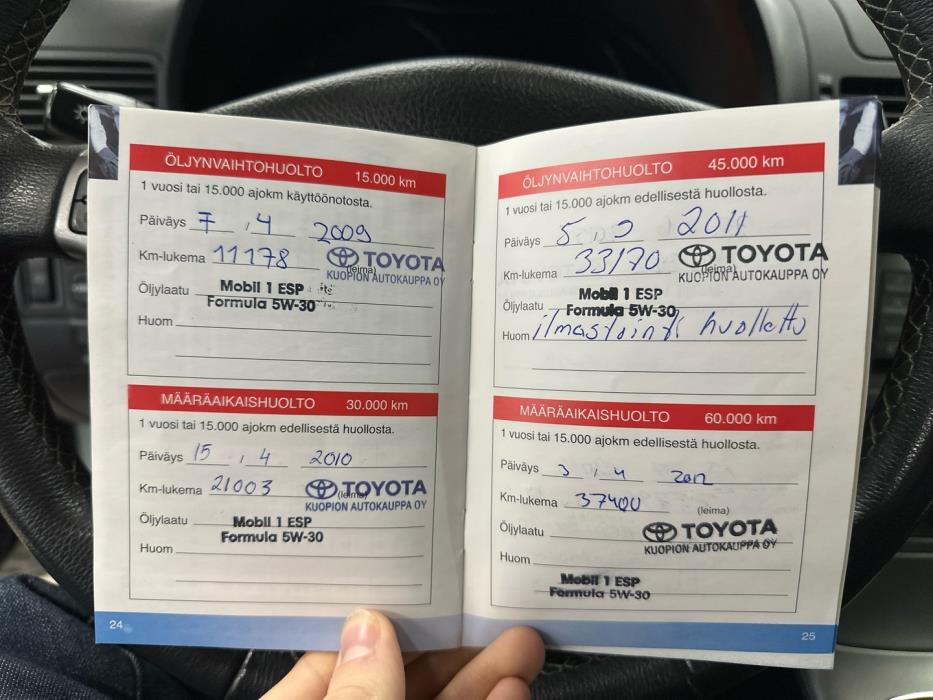 ÖLJYNVAIHTOHUOLTO 15.000 km
1 vuosi tai 15.000 ajokm käyttöönotosta.
Päiväys 7 . 4 2009
Km-lukema 11178
TOYOTA
(leima)
KUOPION AUTOKAUPPA OY
Öljylaatu Mobil 1 ESP
Formula 5W-30
Huom
MÄÄRÄAIKAISHUOLTO 30.000 km
1 vuosi tai 15.000 ajokm edellisestä huollosta.
Päiväys 15 . 4 2010
Km-lukema 21003
TOYOTA
(leima)
KUOPION AUTOKAUPPA OY
Öljylaatu Mobil 1 ESP
Formula 5W-30
Huom
24
ÖLJYNVAIHTOHUOLTO 45.000 km
1 vuosi tai 15.000 ajokm edellisestä huollosta.
Päiväys 5 . 2011
Km-lukema 33170
TOYOTA
(leima)
KUOPION AUTOKAUPPA OY
Öljylaatu Mobil 1 ESP
Formula 5W-30
Huom ilmastointi huollettu
MÄÄRÄAIKAISHUOLTO 60.000 km
1 vuosi tai 15.000 ajokm edellisestä huollosta.
Päiväys 3 . 4 2012
Km-lukema 37400
(leima)
Öljylaatu
TOYOTA
KUOPION AUTOKAUPPA OY
Huom
Mobil 1 ESP
Formula 5W-30
25